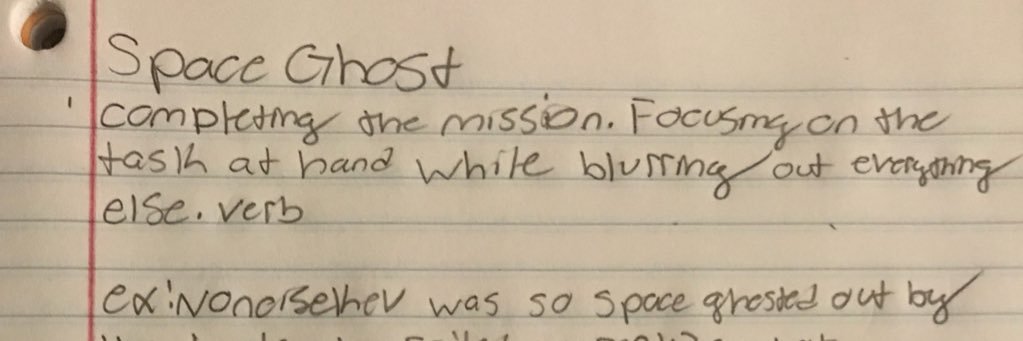 Space Ghost
completing the mission. Focusing on the
task at hand while blurring out everything
else. verb
ex: Nonoisethev was so space ghosted out by